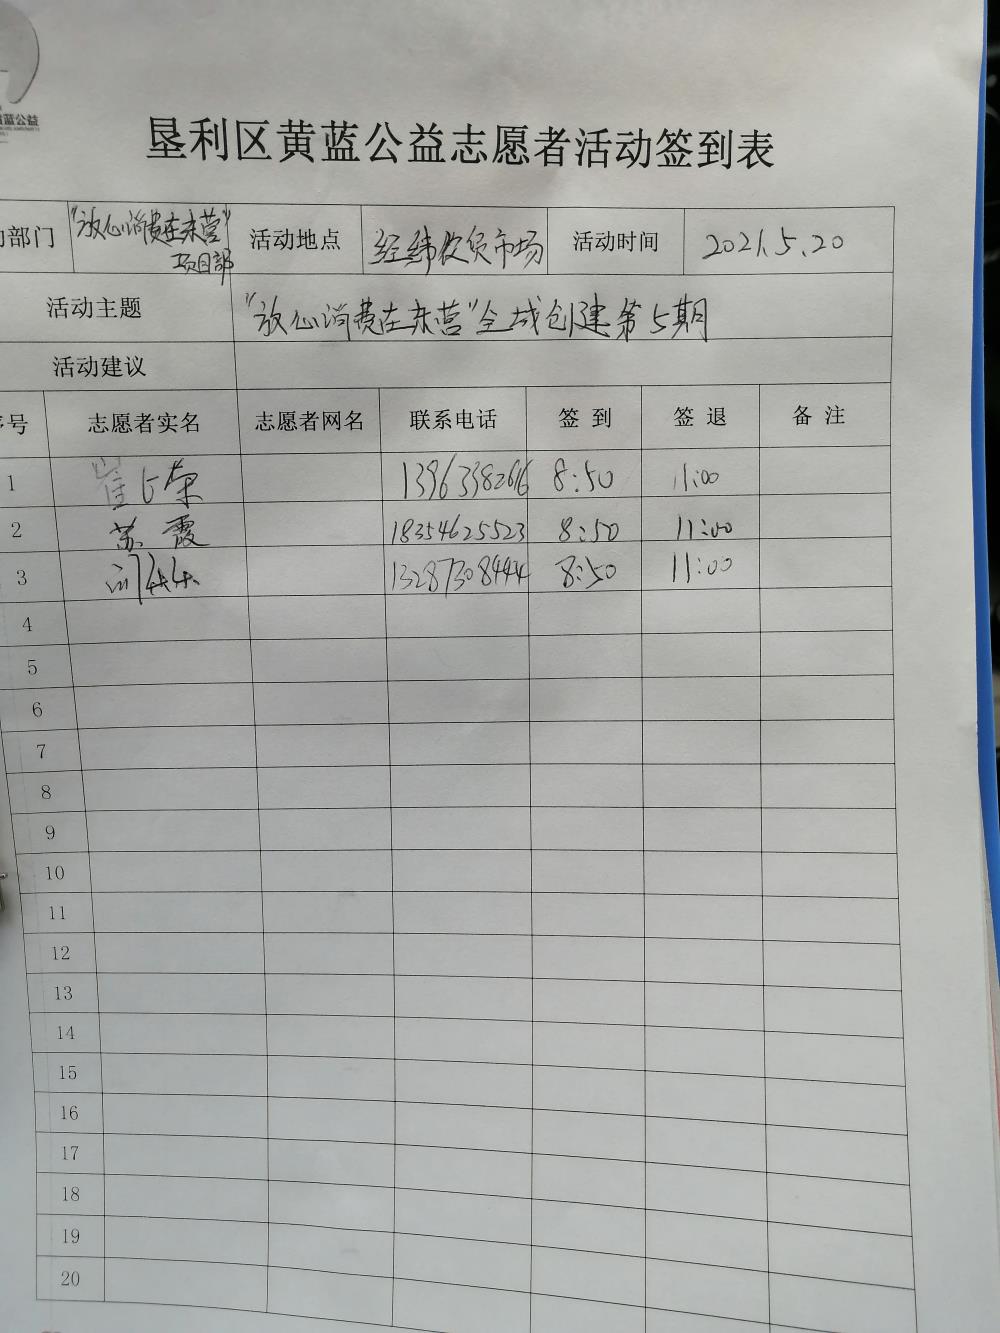 蓝公益
垦利区黄蓝公益志愿者活动签到表
部门 "放心消费在东营" 项目部 活动地点 经纬农贸市场 活动时间 2021.5.20
活动主题 "放心消费在东营"全域创建第5期
活动建议
号 志愿者实名 志愿者网名 联系电话 签到 签退 备注
1 崔 荣 13963382616 8:50 11:00
2 苏霞 18354625523 8:50 11:00
3 13287308444 8:50 11:00
4
5
6
7
8
9
10
11
12
13
14
15
16
17
18
19
20